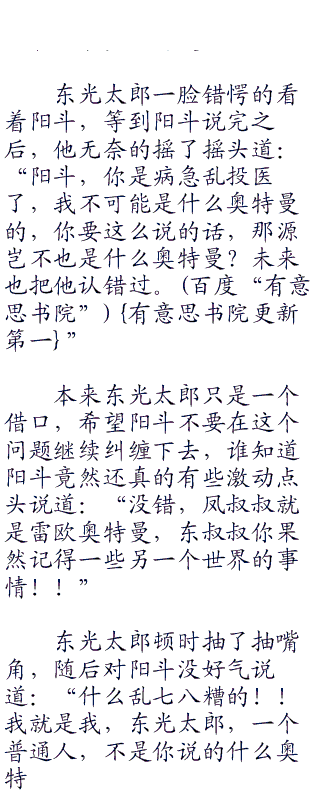 东光太郎一脸错愕的看
着阳斗，等到阳斗说完之
后，他无奈的摇了摇头道：
“阳斗，你是病急乱投医
了，我不可能是什么奥特曼
的，你要这么说的话，那源
岂不也是什么奥特曼？未来
也把他认错过。(百度“有意
思书院”) {有意思书院更新
第一} ”
本来东光太郎只是一个
借口，希望阳斗不要在这个
问题继续纠缠下去，谁知道
阳斗竟然还真的有些激动点
头说道：“没错，凤叔叔就
是雷欧奥特曼，东叔叔你果
然记得一些另一个世界的事
情！！”
东光太郎顿时抽了抽嘴
角，随后对阳斗没好气说
道：“什么乱七八糟的！！
我就是我，东光太郎，一个
普通人，不是你说的什么奥
特